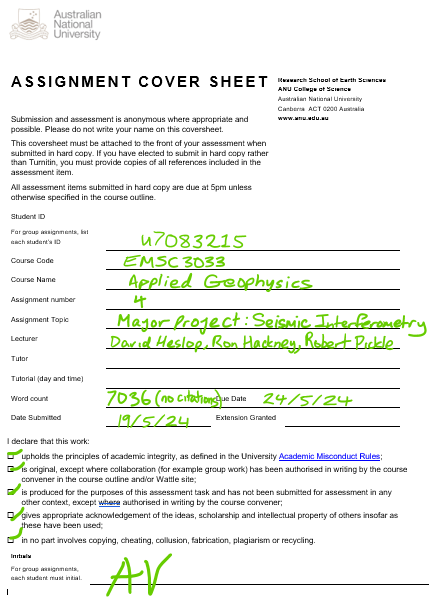 Australian
National
University
ASSIGNMENT COVER SHEET
Research School of Earth Sciences
ANU College of Science
Australian National University
Canberra ACT 0200 Australia
www.anu.edu.au
Submission and assessment is anonymous where appropriate and
possible. Please do not write your name on this coversheet.
This coversheet must be attached to the front of your assessment when
submitted in hard copy. If you have elected to submit in hard copy rather
than Turnitin, you must provide copies of all references included in the
assessment item.
All assessment items submitted in hard copy are due at 5pm unless
otherwise specified in the course outline.
Student ID
For group assignments, list
each student's ID
u7083215
Course Code EMSC3033
Course Name Applied Geophysics
Assignment number 4
Assignment Topic Major Project: Seismic Interferometry
Lecturer David Heslop, Ron Hackney, Robert Pickle
Tutor
Tutorial (day and time)
Word count 7036 (no citations) Due Date 24/5/24
Date Submitted 19/5/24 Extension Granted
I declare that this work:
upholds the principles of academic integrity, as defined in the University Academic Misconduct Rules;
is original, except where collaboration (for example group work) has been authorised in writing by the course
convener in the course outline and/or Wattle site;
is produced for the purposes of this assessment task and has not been submitted for assessment in any
other context, except where authorised in writing by the course convener;
gives appropriate acknowledgement of the ideas, scholarship and intellectual property of others insofar as
these have been used;
in no part involves copying, cheating, collusion, fabrication, plagiarism or recycling.
Initials
For group assignments,
each student must initial.
AV